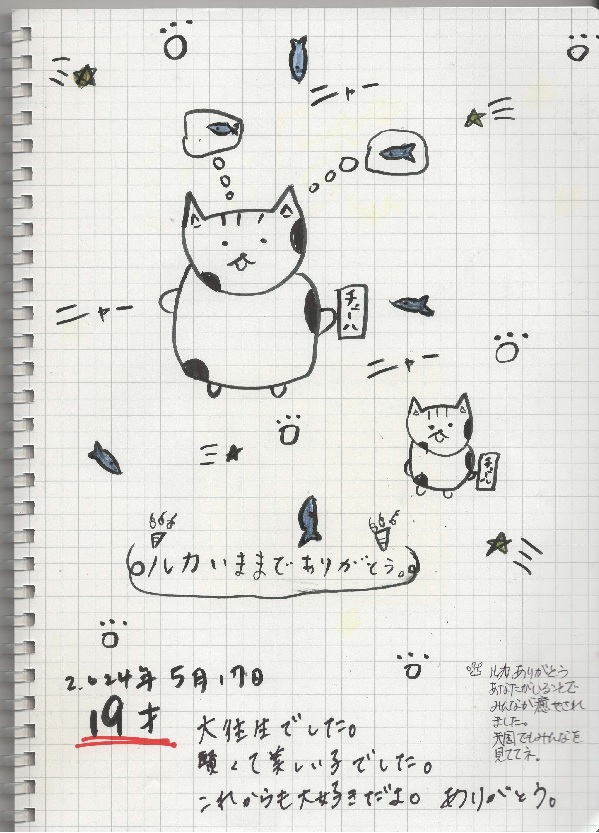 ニャー
ニャー
チュール
ニャー
チュール
ルカいままでありがとう。
2024年5月17日
19才
大往生でした。
賢くて美しい子でした。
これからも大好きだよ。ありがとう。
ルカありがとう
あなたがいることで
みんなが癒せされ
ました。
天国でもみんなを
見ててネ。